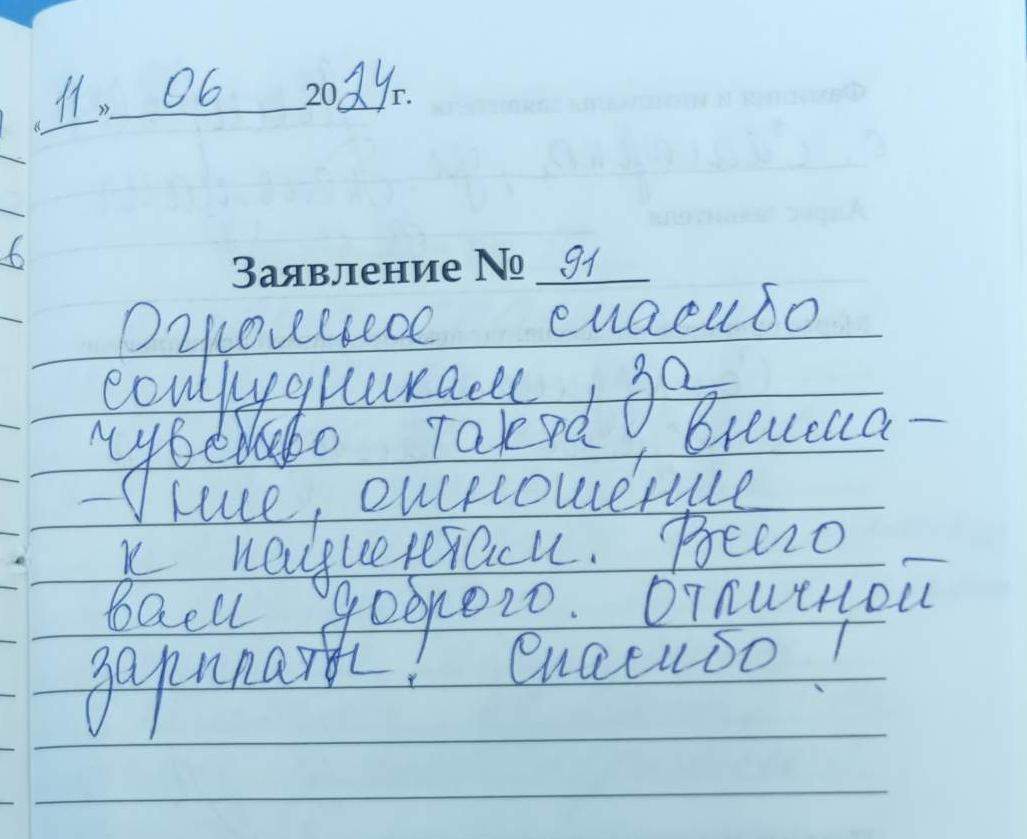 «11» 06 2024г.
Заявление № 91
Огромное спасибо
сотрудникам, за
чувство такта, внима-
- ние, отношение
к пациентам. Всего
вам доброго. Отличной
зарплаты! Спасибо!